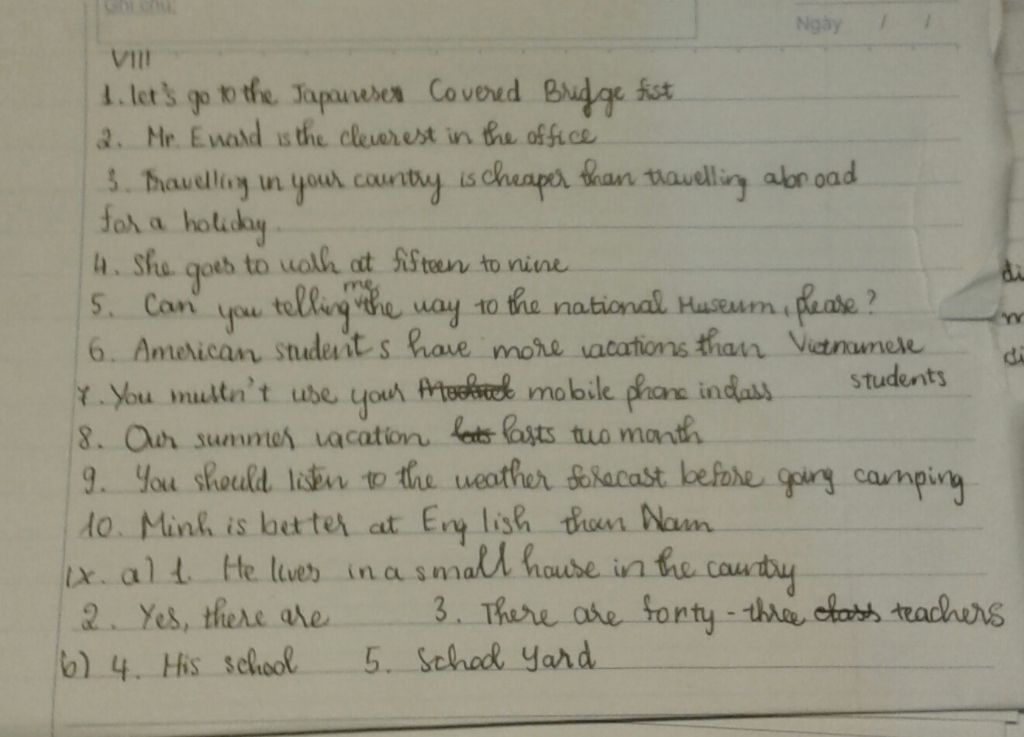 Ghi chú:
Ngày / /
VIII
1. let's go to the Japanese Covered Bridge fist
2. Mr. Enard is the cleverest in the office
3. Travelling in your country is cheaper than travelling abroad
for a holiday.
4. She goes to wolk at fifteen to nine
5. Can you telling me the way to the national Museum, please?
6. American students have more vacations than Vietnamese
students
7. You mustn't use your mobile phone in class
8. Our summer vacation lasts two month
9. You should listen to the weather forecast before going camping
10. Minh is better at English than Nam
IX. a) 1. He lives in a small house in the country
2. Yes, there are 3. There are forty-three class teachers
b) 4. His school 5. School yard
di
m
di